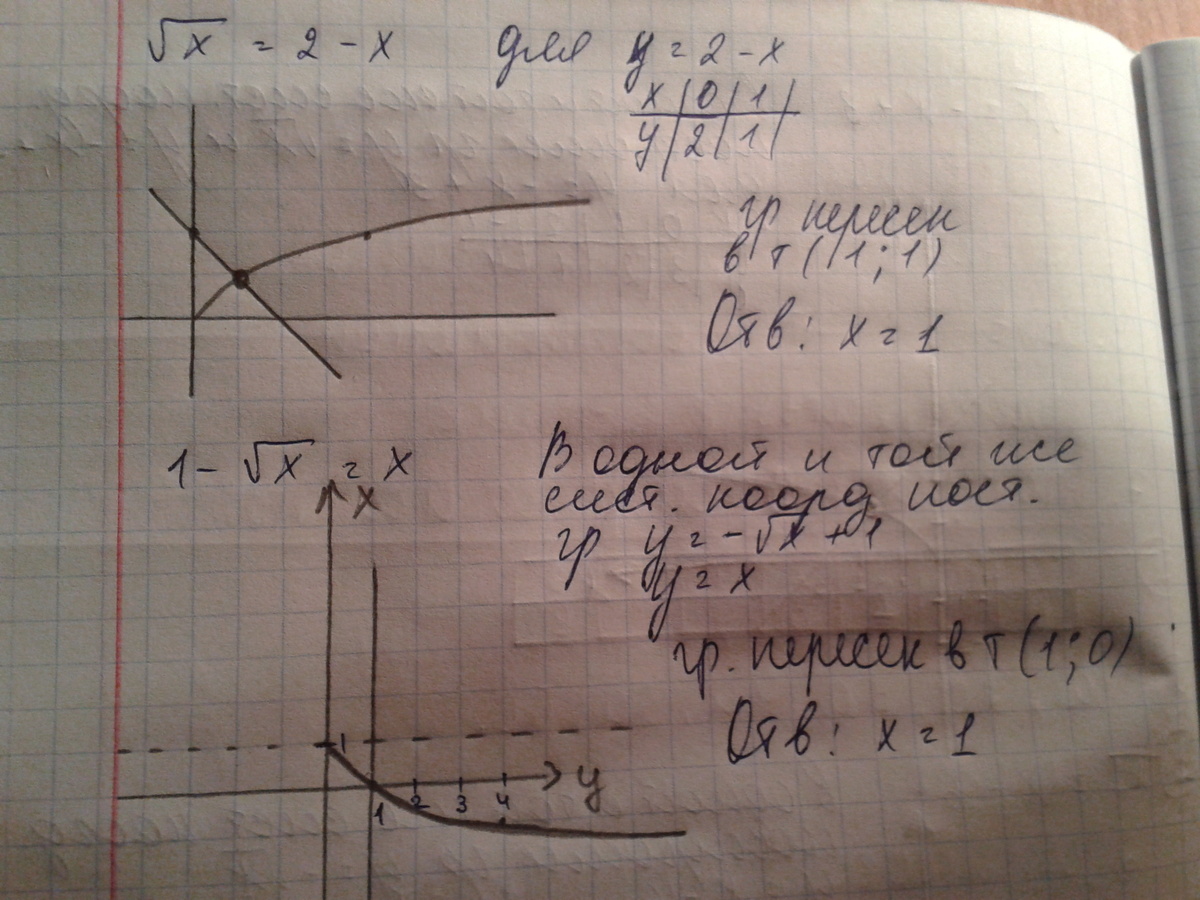 √x = 2 - x для y = 2 - x
x | 0 | 1 |
y | 2 | 1 |
гр пересек
в т (1; 1)
Отв: x = 1
1 - √x = x
В одной и той же
сист. коорд пост.
гр y = -√x + 1
y = x
гр. пересек в т (1; 0)
Отв: x = 1
x
1
y
1 2 3 4